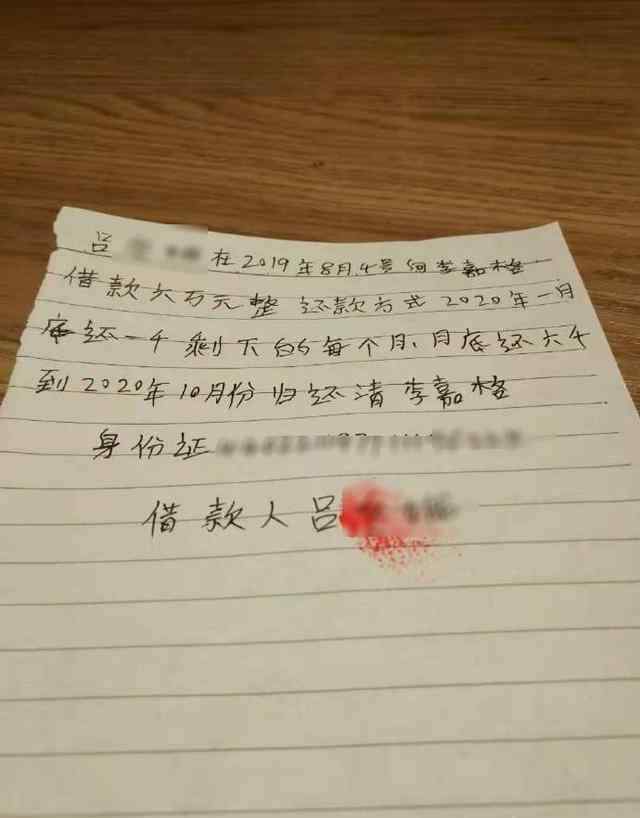 吕 在2019年8月4号向李嘉格
借款六万元整 还款方式2020年一月
底还一千剩下的每个月月底还六千
到2020年10月份归还清李嘉格
身份证
借款人吕